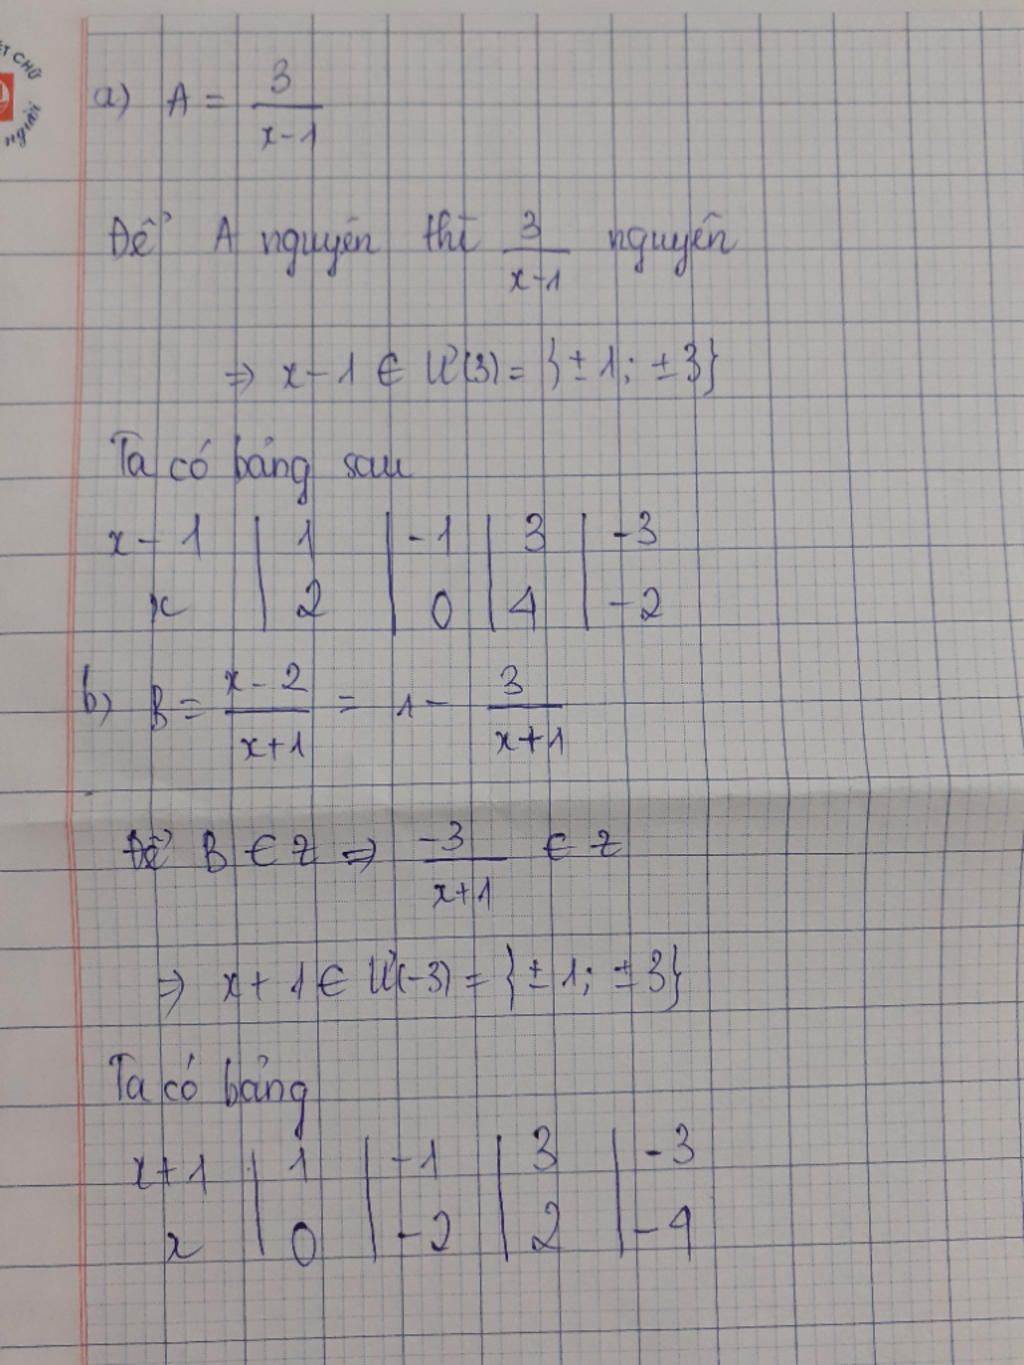 ẾT CHỮ
người
a) A = 3/(x-1)
Để A nguyên thì 3/(x-1) nguyên
=> x-1 ∈ Ư(3) = {±1; ±3}
Ta có bảng sau
x-1 | 1 | -1 | 3 | -3
x | 2 | 0 | 4 | -2
b) B = (x-2)/(x+1) = 1 - 3/(x+1)
Để B ∈ Z => -3/(x+1) ∈ Z
=> x+1 ∈ Ư(-3) = {±1; ±3}
Ta có bảng
x+1 | 1 | -1 | 3 | -3
x | 0 | -2 | 2 | -4